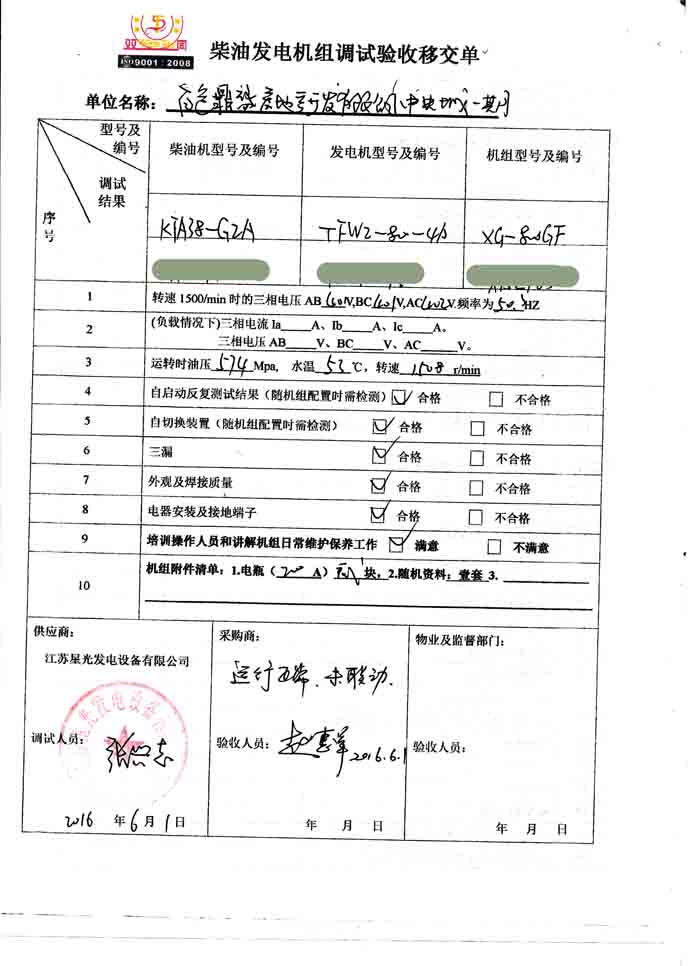 双 同
ISO9001:2008
柴油发电机组调试验收移交单
单位名称:
型号及
编号
调试
结果
序
号
柴油机型号及编号
发电机型号及编号
机组型号及编号
KTA38-G2A
TFW2-800-4A
XG-800GF
1
转速1500/min时的三相电压AB 401V,BC 401V,AC 402V.频率为50.HZ
2
(负载情况下)三相电流Ia____A、Ib____A、Ic____A。
三相电压AB____V、BC____V、AC____V。
3
运转时油压 574 Mpa, 水温 53 ℃, 转速 1508 r/min
4
自启动反复测试结果(随机组配置时需检测) ☑ 合格 □ 不合格
5
自切换装置(随机组配置时需检测) ☑ 合格 □ 不合格
6
三漏 ☑ 合格 □ 不合格
7
外观及焊接质量 ☑ 合格 □ 不合格
8
电器安装及接地端子 ☑ 合格 □ 不合格
9
培训操作人员和讲解机组日常维护保养工作 ☑ 满意 □ 不满意
10
机组附件清单:1.电瓶(200 A) 块,2.随机资料:壹套 3.
供应商:
江苏星光发电设备有限公司
调试人员:
2016 年 6 月 1 日
采购商:
运行正常.未联动.
验收人员: 赵惠军 2016.6.1
年 月 日
物业及监督部门:
验收人员:
年 月 日